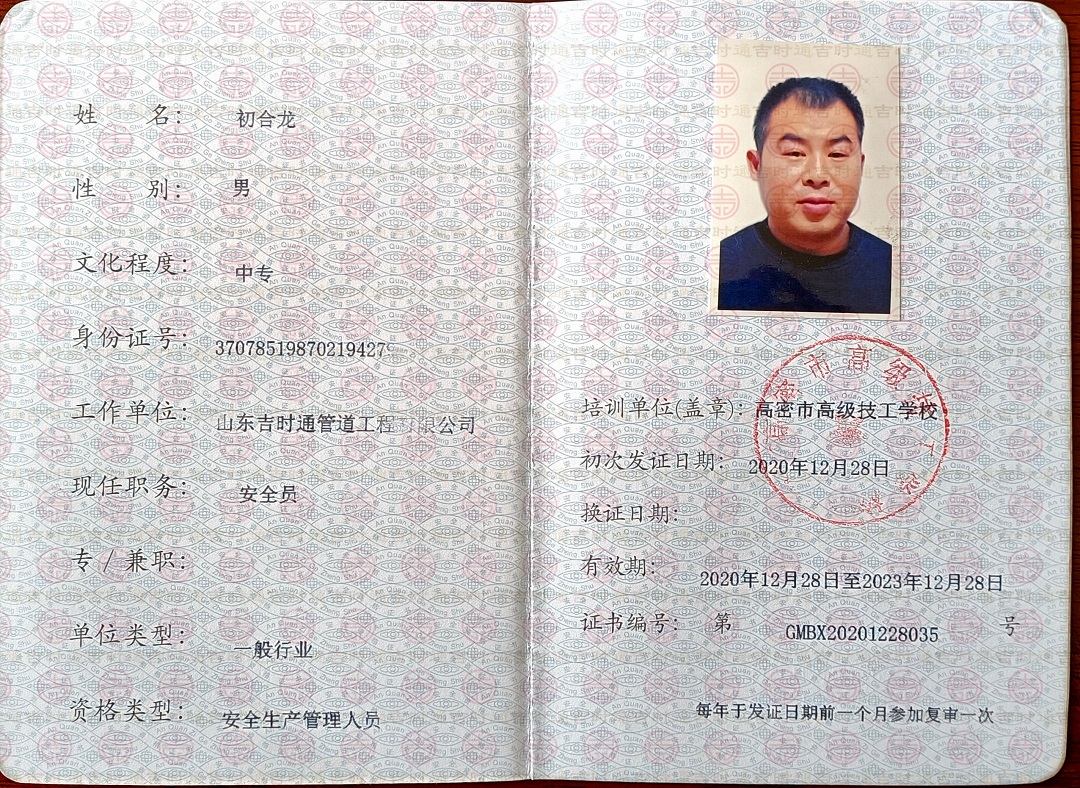 姓 名： 初合龙
性 别： 男
文化程度： 中专
身份证号： 37078519870219427
工作单位： 山东吉时通管道工程有限公司
现任职务： 安全员
专 / 兼职：
单位类型： 一般行业
资格类型： 安全生产管理人员
培训单位(盖章)：高密市高级技工学校
初次发证日期： 2020年12月28日
换证日期：
有效期： 2020年12月28日至2023年12月28日
证书编号： 第 GMBX20201228035 号
每年于发证日期前一个月参加复审一次